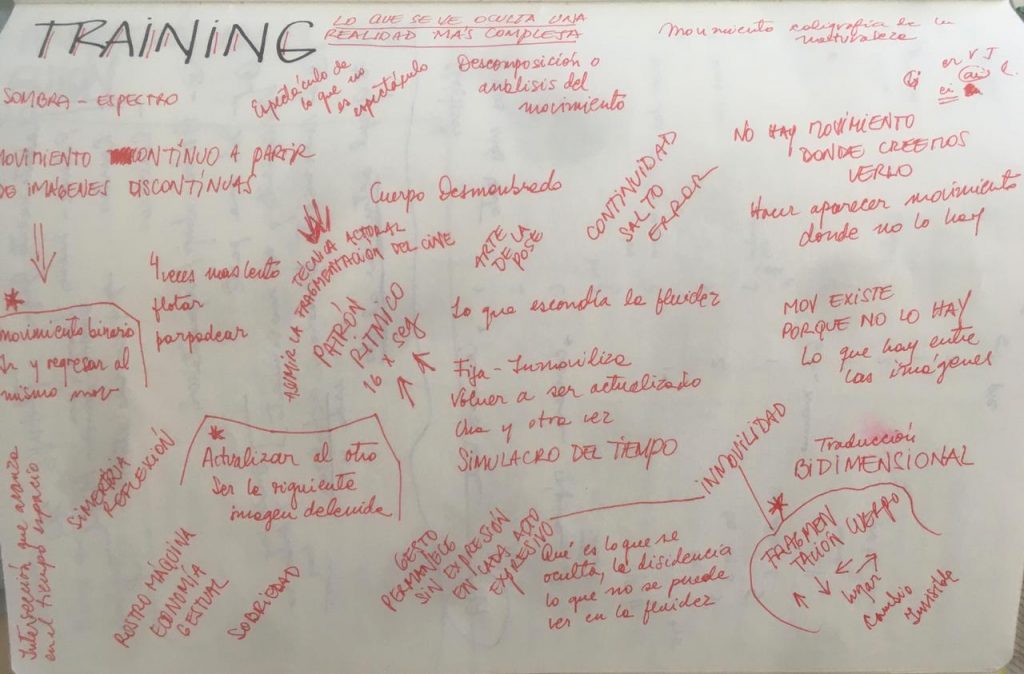 TRAINING
LO QUE SE VE OCULTA UNA
REALIDAD MÁS COMPLETA
Movimiento caligrafía de la
naturaleza
SOMBRA - ESPECTRO
Espectáculo de
lo que no
es espectáculo
Descomposición o
análisis del
movimiento
er V I
ai
ei
MOVIMIENTO CONTÍNUO A PARTIR
DE IMÁGENES DISCONTÍNUAS
Cuerpo Desmembrado
CONTINUIDAD
SALTO
ERROR
NO HAY MOVIMIENTO
DONDE CREEMOS
VERLO
Hacer aparecer movimiento
donde no lo hay
4 veces mas lento
flotar
parpadear
TÉCNICA ACTORAL
ASUMIR LA FRAGMENTACIÓN DEL CINE
PATRÓN
RÍTMICO
16 x seg
ARTE
DE LA
POSE
Lo que escondía la fluidez
MOV EXISTE
PORQUE NO LO HAY
Lo que hay entre
las imágenes
* movimiento binario
Ir y regresar al
mismo mov
Fija - Inmoviliza
Volver a ser actualizado
Una y otra vez
SIMULACRO DEL TIEMPO
* Actualizar al otro
Ser la siguiente
imagen detenida
SIMETRÍA
REFLEXIÓN
INMOVILIDAD
Traducción
BIDIMENSIONAL
* FRAGMEN
TACIÓN CUERPO
lugar
Cambio
Invisible
Intersección que avanza
en el tiempo espacio
ROSTRO MÁQUINA
ECONOMÍA
GESTUAL
SOBRIEDAD
GESTO
PERMANECE
SIN EXPRESIÓN
EN CADA ACTO
EXPRESIVO
Qué es lo que se
oculta, la disidencia
lo que no se puede
ver en la fluidez